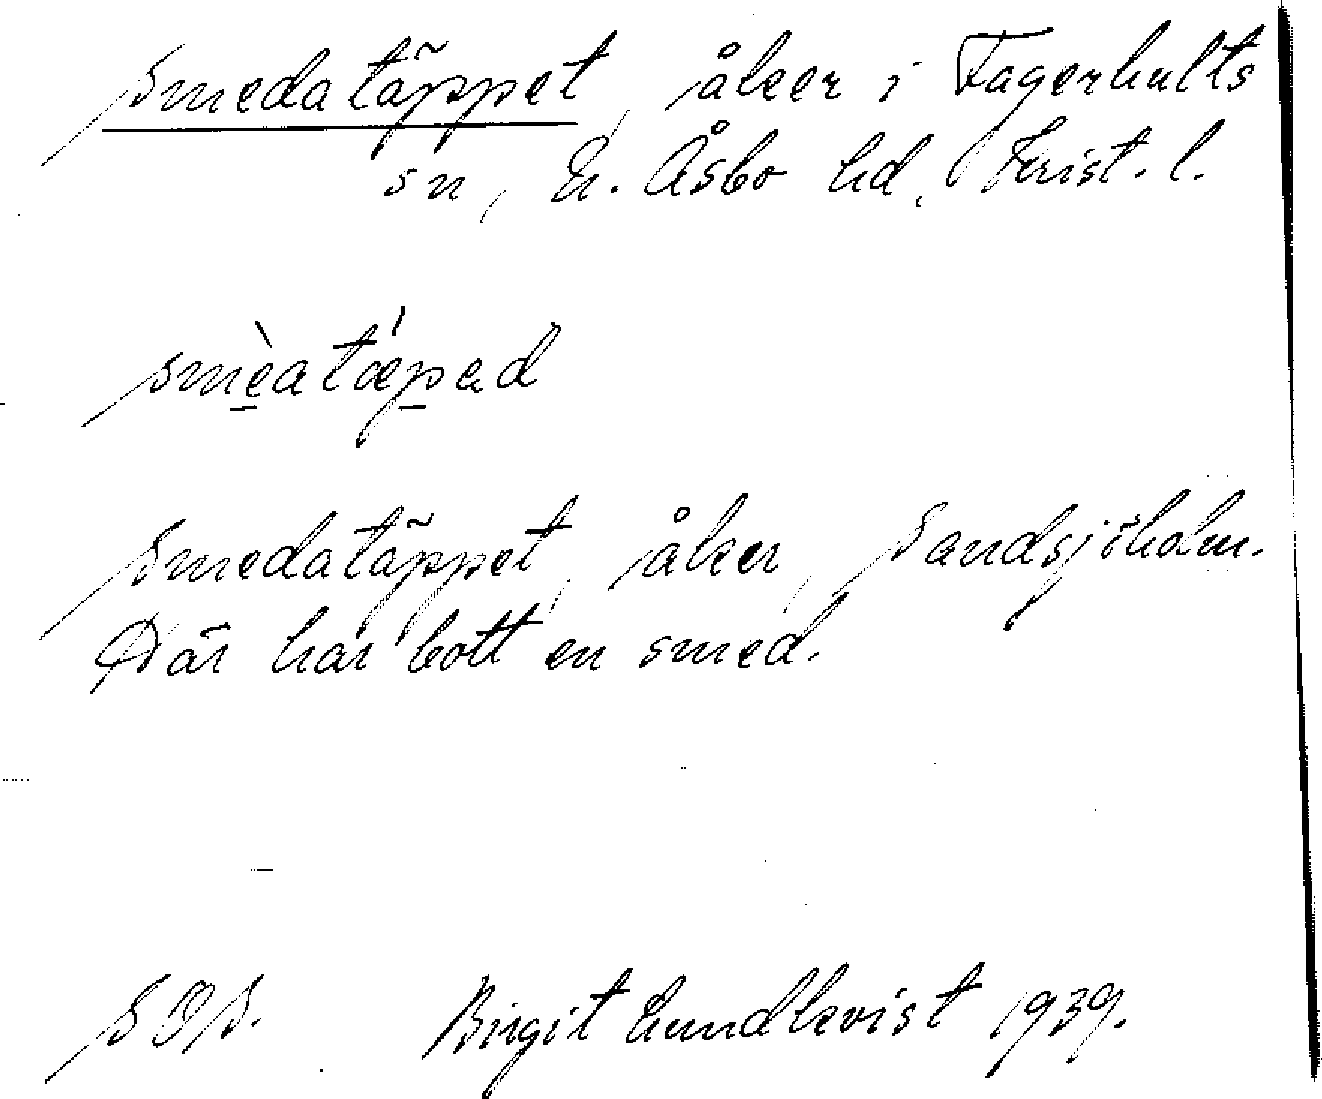 Smedatäppet, åker i Fagerhults
sn, N. Åsbo hd, Krist. l.
smèatǽpad
Smedatäppet, åker, Sandsjöholm.
Där har bott en smed.
SOS. Birgit Lundkvist 1939.